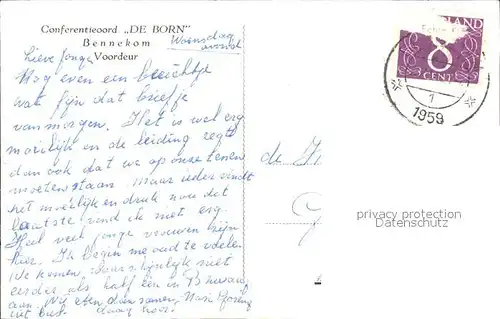 Conferentieoord „DE BORN"
Bennekom
Voordeur
Woensdag
avond
Lieve jonge
Nog even een berichtje
wat fijn dat briefje
van morgen. Het is wel erg
moeilijk en de leiding zegt
dan ook dat we op onze tenen
moeten staan. Maar ieder vindt
het moeilijk en druk nou dat
laatste vind ik niet erg.
Heel veel jonge vrouwen zijn
hier. Ik begin me oud te voelen.
We komen, waarschijnlijk niet
eerder als half één in
aan. eten dan samen,
daag hoor.
LAND
8
CENT
1
1959
de
privacy protection
Datenschutz